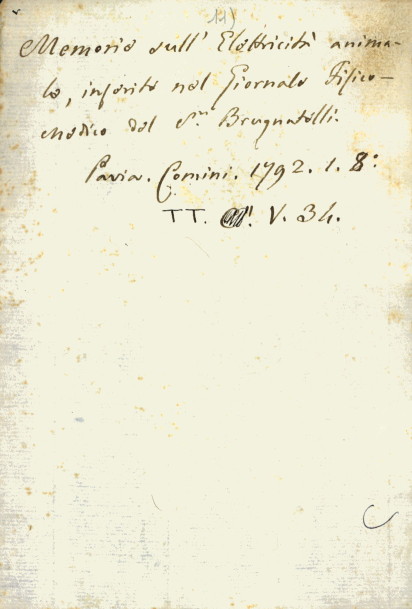 11)
Memorie sull' Elettricità anima-
le, inserite nel Giornale Fisico-
Medico del S.r Brugnatelli.
Pavia. Comini. 1792. 1. 8:
TT. V. 34.